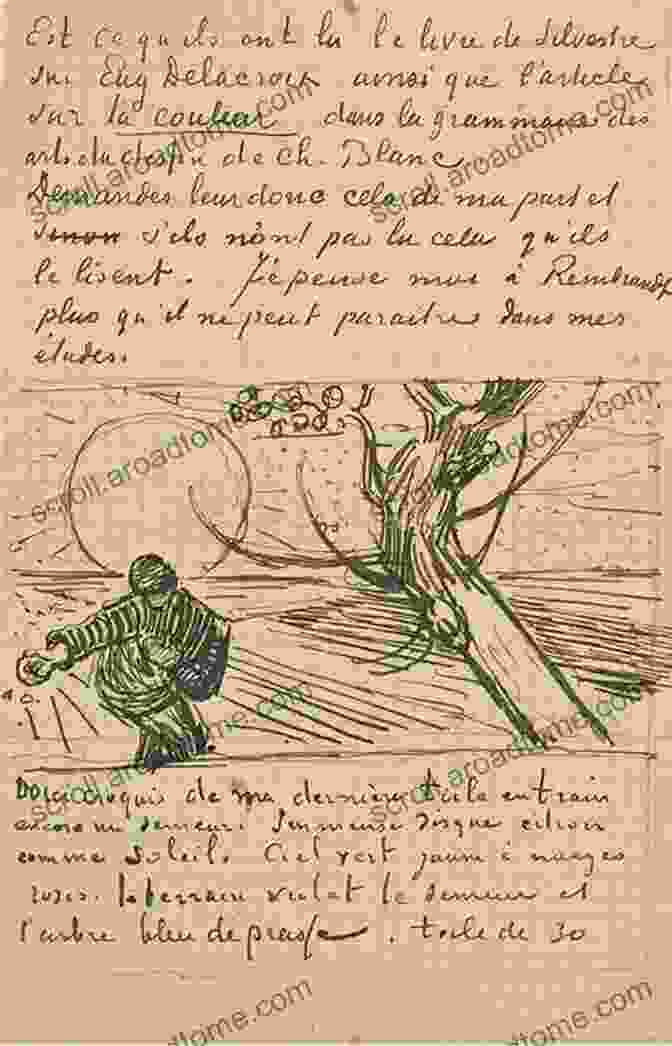 Est ce qu'ils ont lu le livre de Silvestre
sur Eug Delacroix ainsi que l'article
sur la couleur dans la grammaire des
arts du dessin de Ch. Blanc
Demandes leur donc cela de ma part et
sinon s'ils n'ont pas lu cela qu'ils
le lisent. Je pense moi à Rembrandt
plus qu'il ne peut paraitre dans mes
études.
Voici croquis de ma dernière toile en train
encore un semeur. Immense disque citron
comme soleil. Ciel vert jaune à nuages
roses. le terrain violet le semeur et
l'arbre bleu de prusse. toile de 30
scroll.aroadtome.com
scroll.aroadtome.com
scroll.aroadtome.com
scroll.aroadtome.com
scroll.aroadtome.com
scroll.aroadtome.com
aroadtome.com
aroadtome.com